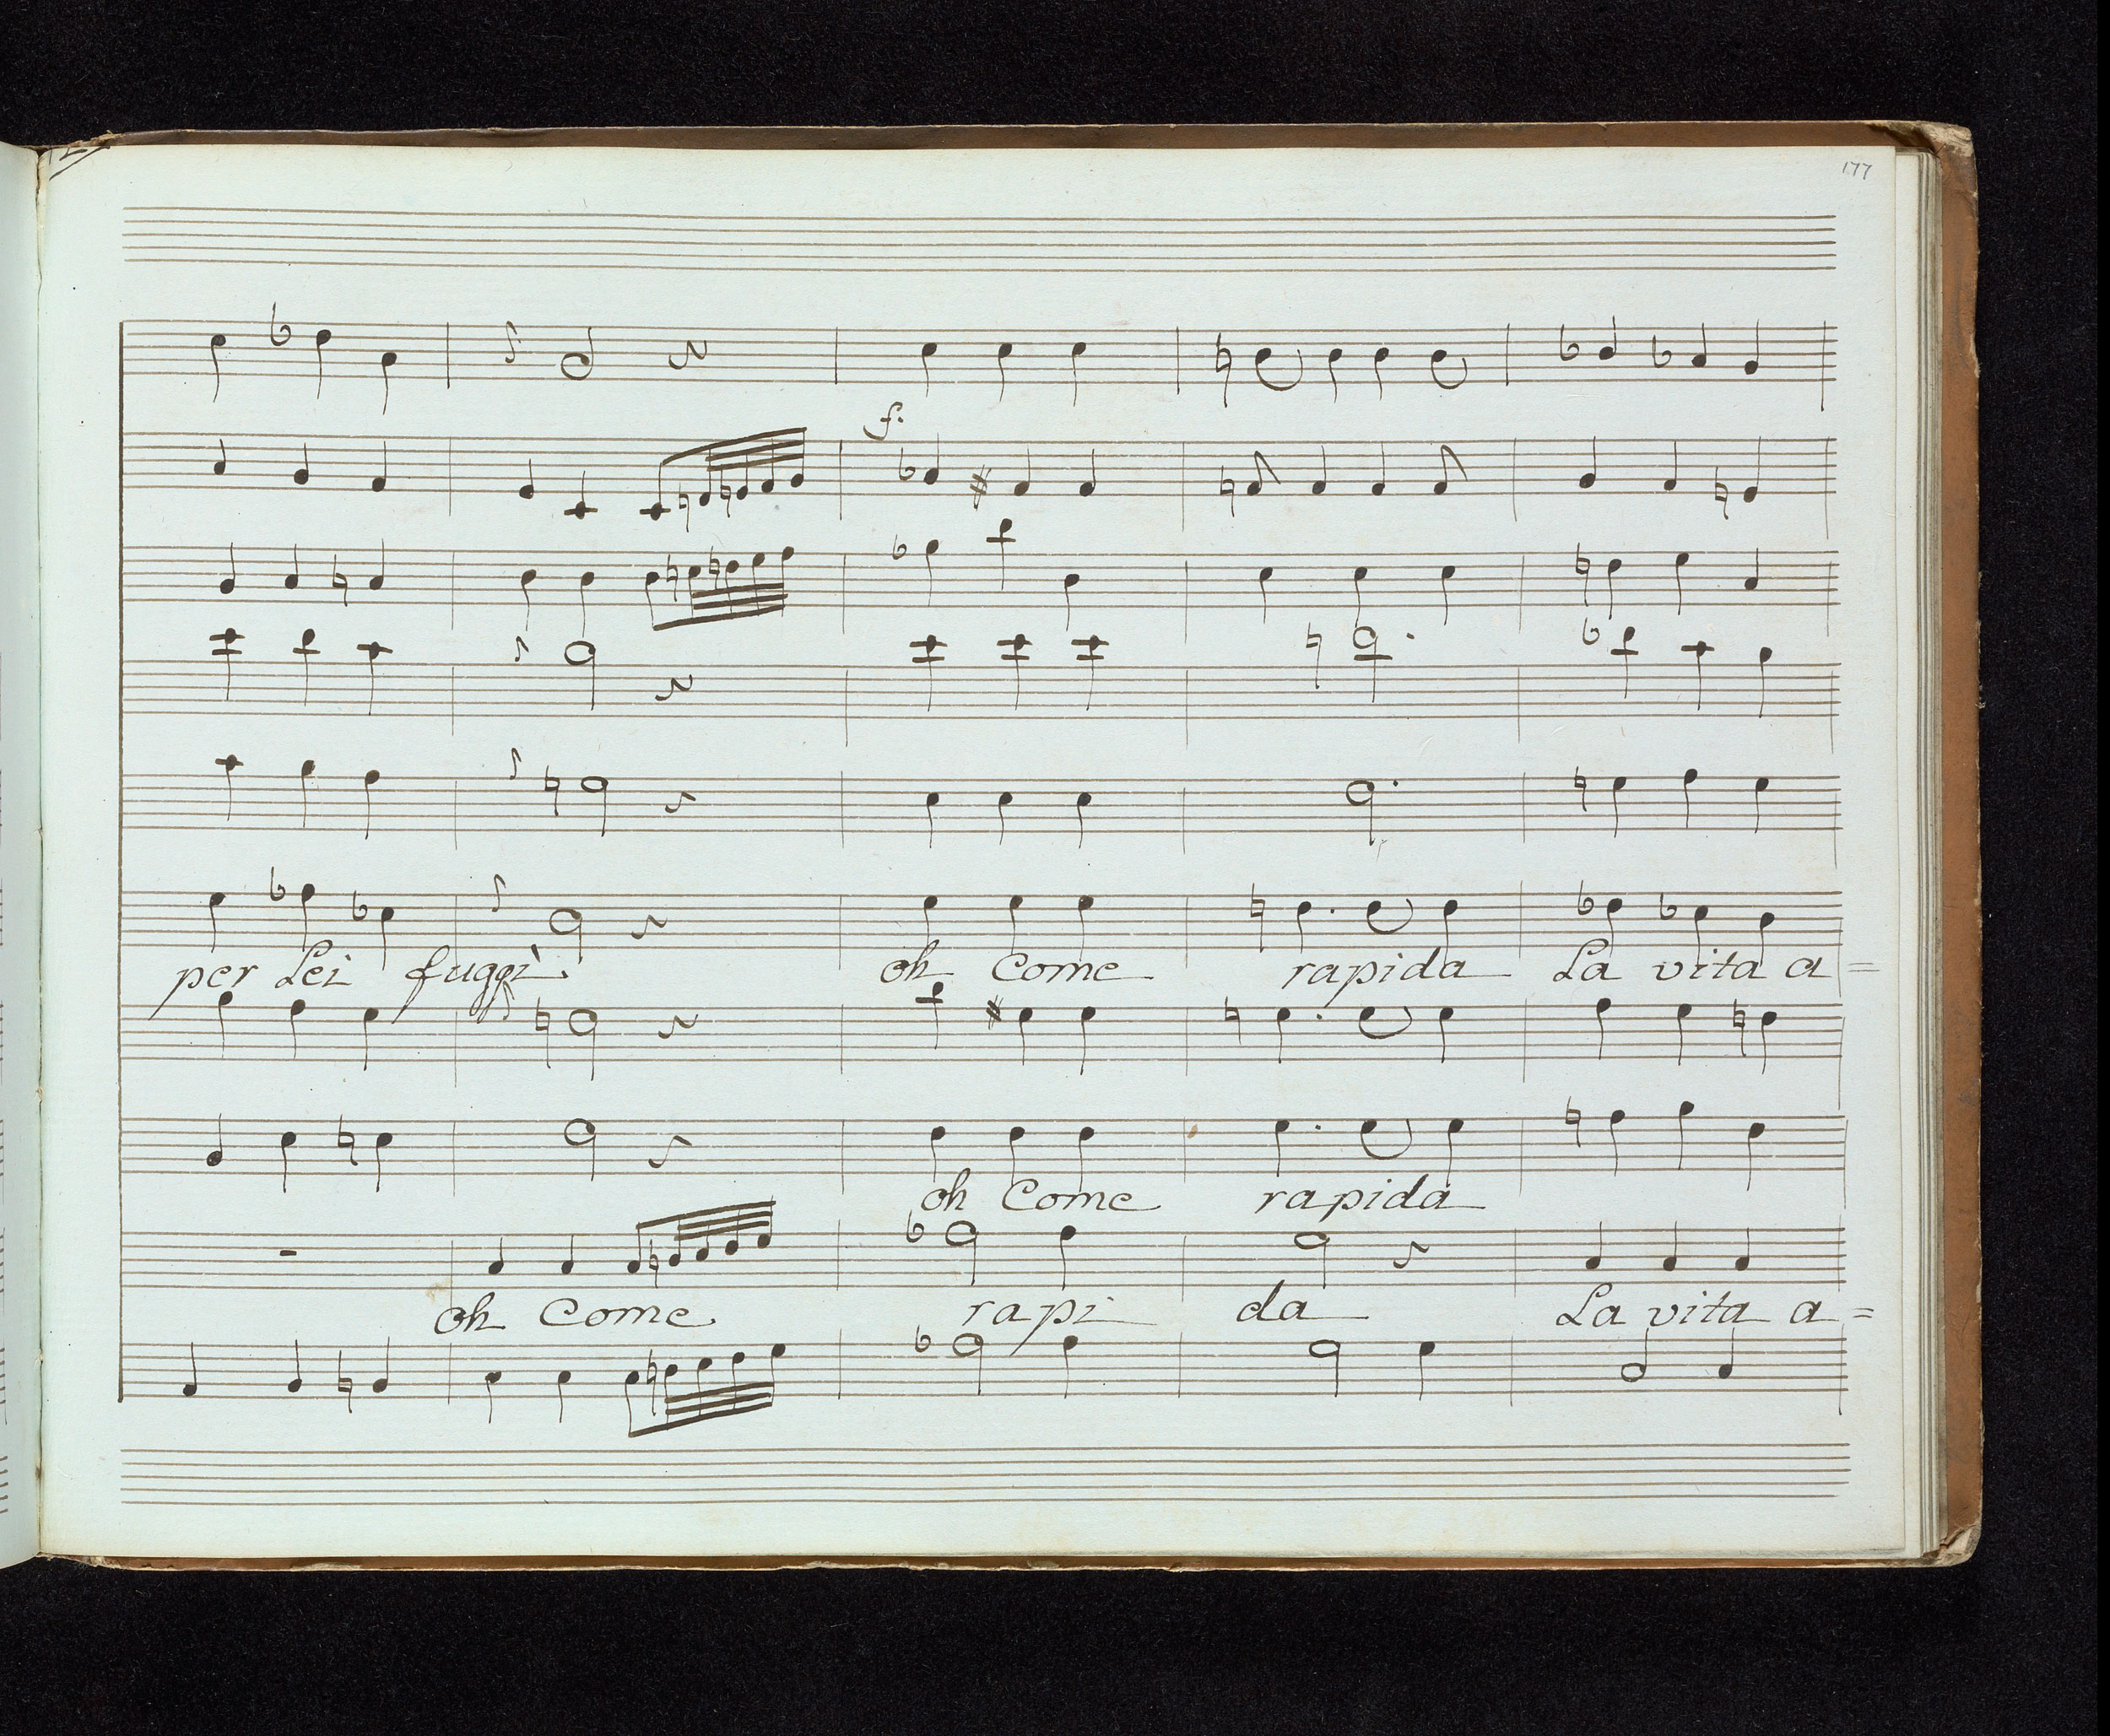 177
f.
per Lei fuggì oh Come rapida La vita a=
oh Come rapida
oh Come rapi da La vita a=